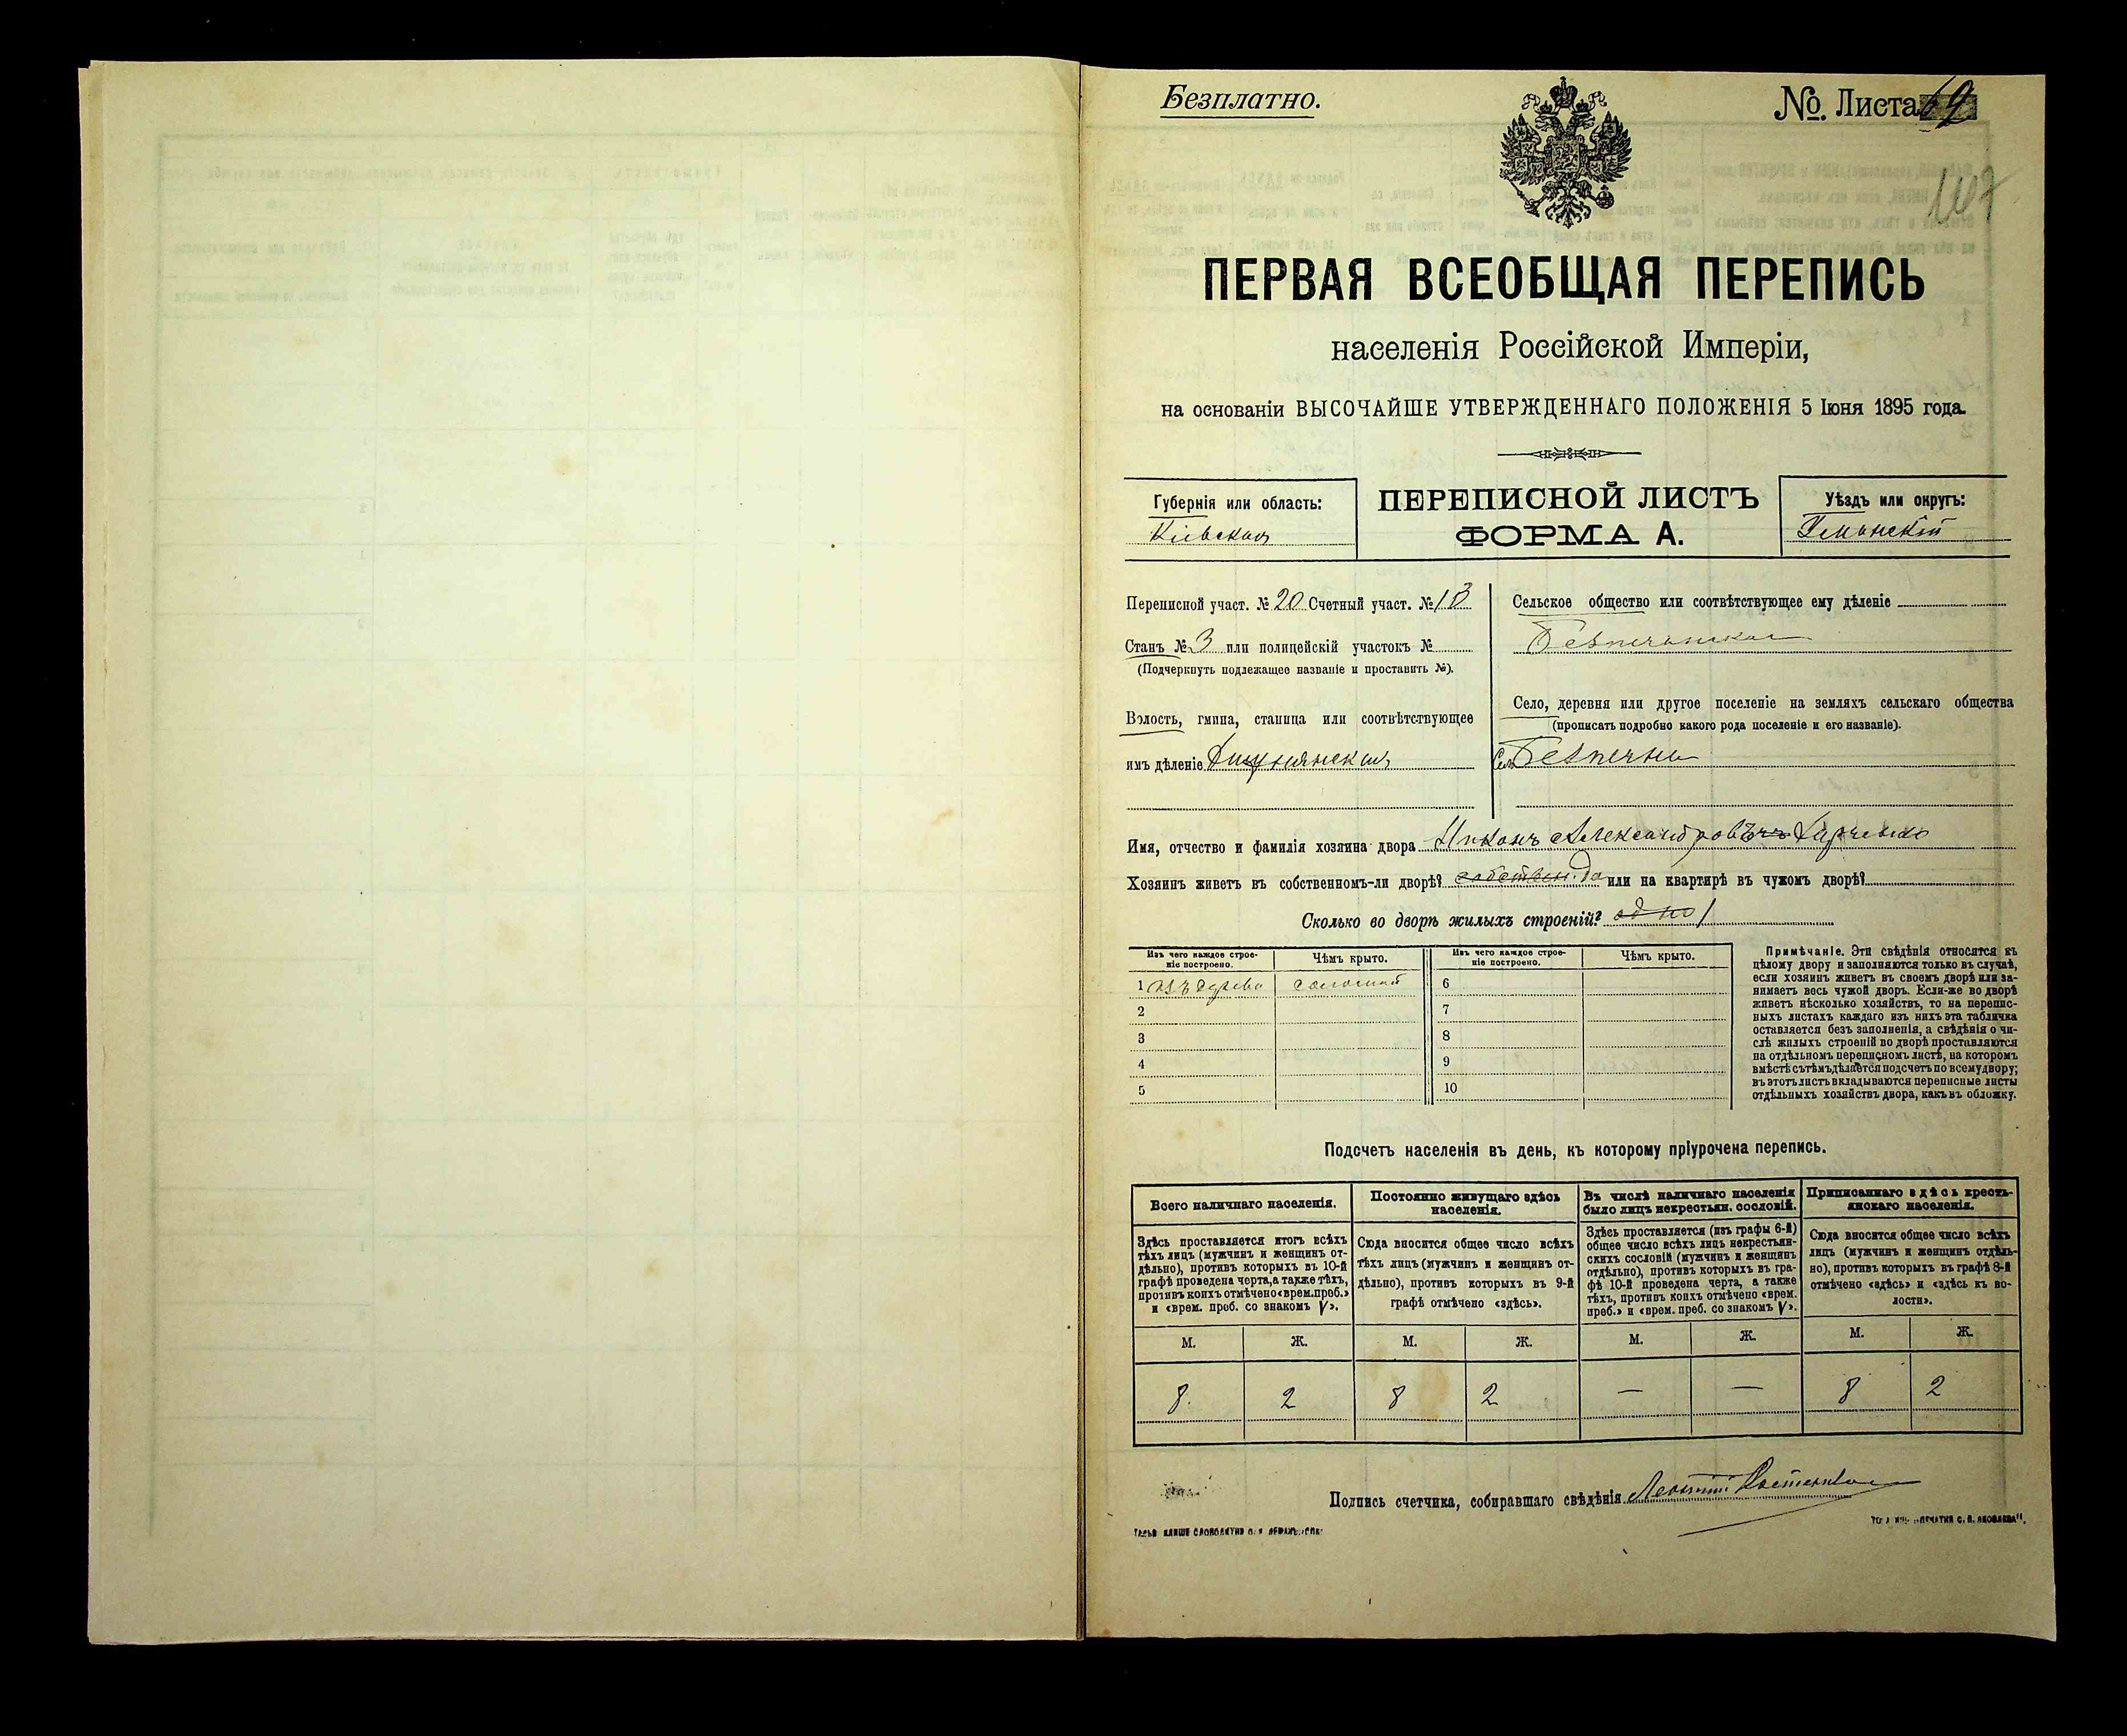 Безплатно.
№. Листа 69
ПЕРВАЯ ВСЕОБЩАЯ ПЕРЕПИСЬ
населенія Россійской Имперіи,
на основаніи ВЫСОЧАЙШЕ УТВЕРЖДЕННАГО ПОЛОЖЕНІЯ 5 Іюня 1895 года.
Губернія или область:
Кіевская
ПЕРЕПИСНОЙ ЛИСТЪ
ФОРМА А.
Уѣздъ или округъ:
Уманскій
Переписной участ. № 20 Счетный участ. № 13
Станъ № 3 или полицейскій участокъ №
(Подчеркнуть подлежащее названіе и проставить №).
Волость, гмина, станица или соотвѣтствующее
имъ дѣленіе
Сельское общество или соотвѣтствующее ему дѣленіе
Безпечанское
Село, деревня или другое поселеніе на земляхъ сельскаго общества
(прописать подробно какого рода поселеніе и его названіе).
Село Безпечна
Имя, отчество и фамилія хозяина двора Никонъ Александровъ Харченко
Хозяинъ живетъ въ собственномъ-ли дворѣ? собствен. да или на квартирѣ въ чужомъ дворѣ?
Сколько во дворѣ жилыхъ строеній? одно 1
Изъ чего каждое строе-
ніе построено.
Чѣмъ крыто.
Изъ чего каждое строе-
ніе построено.
Чѣмъ крыто.
1 изъ дерева соломой 6
2 7
3 8
4 9
5 10
Примѣчаніе. Эти свѣдѣнія относятся къ
цѣлому двору и заполняются только въ случаѣ,
если хозяинъ живетъ въ своемъ дворѣ или за-
нимаетъ весь чужой дворъ. Если-же во дворѣ
живетъ нѣсколько хозяйствъ, то на перепис-
ныхъ листахъ каждаго изъ нихъ эта табличка
оставляется безъ заполненія, а свѣдѣнія о чи-
слѣ жилыхъ строеній во дворѣ проставляются
на отдѣльномъ переписномъ листѣ, на которомъ
вмѣстѣ съ тѣмъ дѣлается подсчетъ по всему двору;
въ этотъ листъ вкладываются переписные листы
отдѣльныхъ хозяйствъ двора, какъ въ обложку.
Подсчетъ населенія въ день, къ которому пріурочена перепись.
Всего наличнаго населенія.
Здѣсь проставляется итогъ всѣхъ
тѣхъ лицъ (мужчинъ и женщинъ от-
дѣльно), противъ которыхъ въ 10-й
графѣ проведена черта, а также тѣхъ,
противъ коихъ отмѣчено «врем. преб.»
и «врем. преб. со знакомъ V».
Постоянно живущаго здѣсь
населенія.
Сюда вносится общее число всѣхъ
тѣхъ лицъ (мужчинъ и женщинъ от-
дѣльно), противъ которыхъ въ 9-й
графѣ отмѣчено «здѣсь».
Въ числѣ наличнаго населенія
было лицъ некрестьян. сословій.
Здѣсь проставляется (изъ графы 6-й)
общее число всѣхъ лицъ некрестьян-
скихъ сословій (мужчинъ и женщинъ
отдѣльно), противъ которыхъ въ гра-
фѣ 10-й проведена черта, а также
тѣхъ, противъ коихъ отмѣчено «врем.
преб.» и «врем. преб. со знакомъ V».
Приписаннаго здѣсь кресть-
янскаго населенія.
Сюда вносится общее число всѣхъ
лицъ (мужчинъ и женщинъ отдѣль-
но), противъ которыхъ въ графѣ 8-й
отмѣчено «здѣсь» и «здѣсь къ во-
лости».
М. Ж. М. Ж. М. Ж. М. Ж.
8 2 8 2 — — 8 2
Подпись счетчика, собиравшаго свѣдѣнія Леонтій